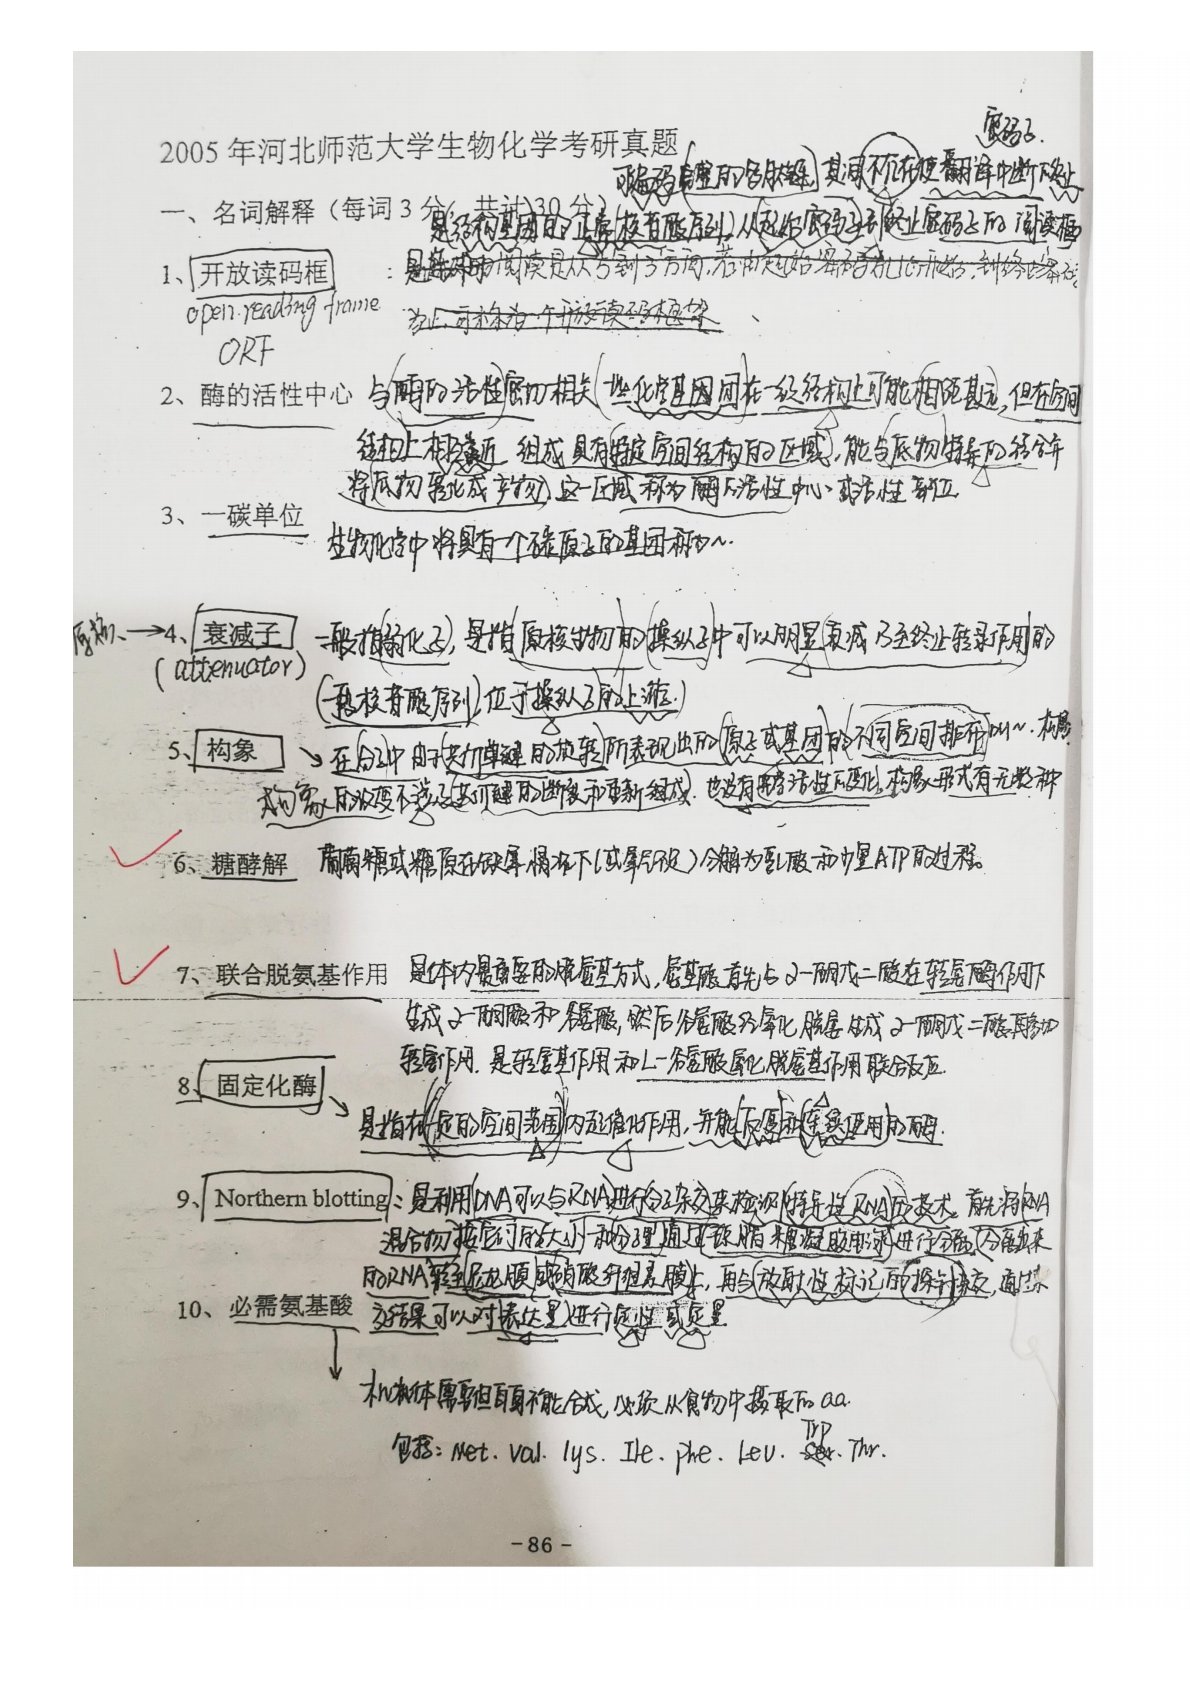 密码子.
2005 年河北师范大学生物化学考研真题
可编码完整的多肽链, 其间不存在使翻译中断的终止
一、名词解释（每词 3 分，共计 30 分）
是结构基因的正常核苷酸序列, 从起始密码子到终止密码子的阅读框
1、开放读码框 :
open reading frame
ORF
2、酶的活性中心 与酶的活性密切相关一些化学基团间在一级结构上可能相距甚远, 但在空间
结构上相隔靠近 组成具有特定空间结构的区域, 能与底物特异的结合并
将底物转化成产物, 这一区域称为酶的活性中心或活性部位
3、一碳单位
生物化学中将具有一个碳原子的基团称为~.
→4、衰减子 一般指弱化子, 是指原核生物的操纵子中可以明显衰减乃至终止转录作用的
(attenuator)
一段核苷酸序列, 位于操纵子的上游.
5、构象 在分子中由于共价单键的旋转所表现出的原子或基团的不同空间排布叫~. 构象
式构象的改变不涉及共价键的断裂和重新组成. 也没有光学活性的变化, 构象形式有无数种
6、糖酵解 葡萄糖或糖原在缺氧情况下(或氧气不足)分解为乳酸和少量ATP的过程.
7、联合脱氨基作用 是体内最重要的脱氨基方式, 氨基酸首先与α-酮戊二酸在转氨酶作用下
生成α-酮酸和谷氨酸, 然后谷氨酸经氧化脱氨生成α-酮戊二酸再参加
转氨作用. 是转氨基作用和L-谷氨酸氧化脱氨基作用联合反应.
8、固定化酶
是指在一定的空间范围内起催化作用, 并能反复和连续使用的酶.
9、Northern blotting : 是利用DNA可以与RNA进行分子杂交来检测特异性RNA的技术. 首先将RNA
混合物按它们的大小和分子量通过琼脂糖凝胶电泳进行分离, 分离出来
的RNA转至尼龙膜或硝酸纤维素膜上, 再与放射性标记的探针杂交, 通过杂
10、必需氨基酸 交结果可以对表达量进行定性或定量
机体需要但自身不能合成, 必须从食物中摄取的aa.
包括: Met. val. lys. Ile. phe. Leu. Trp Thr.
- 86 -